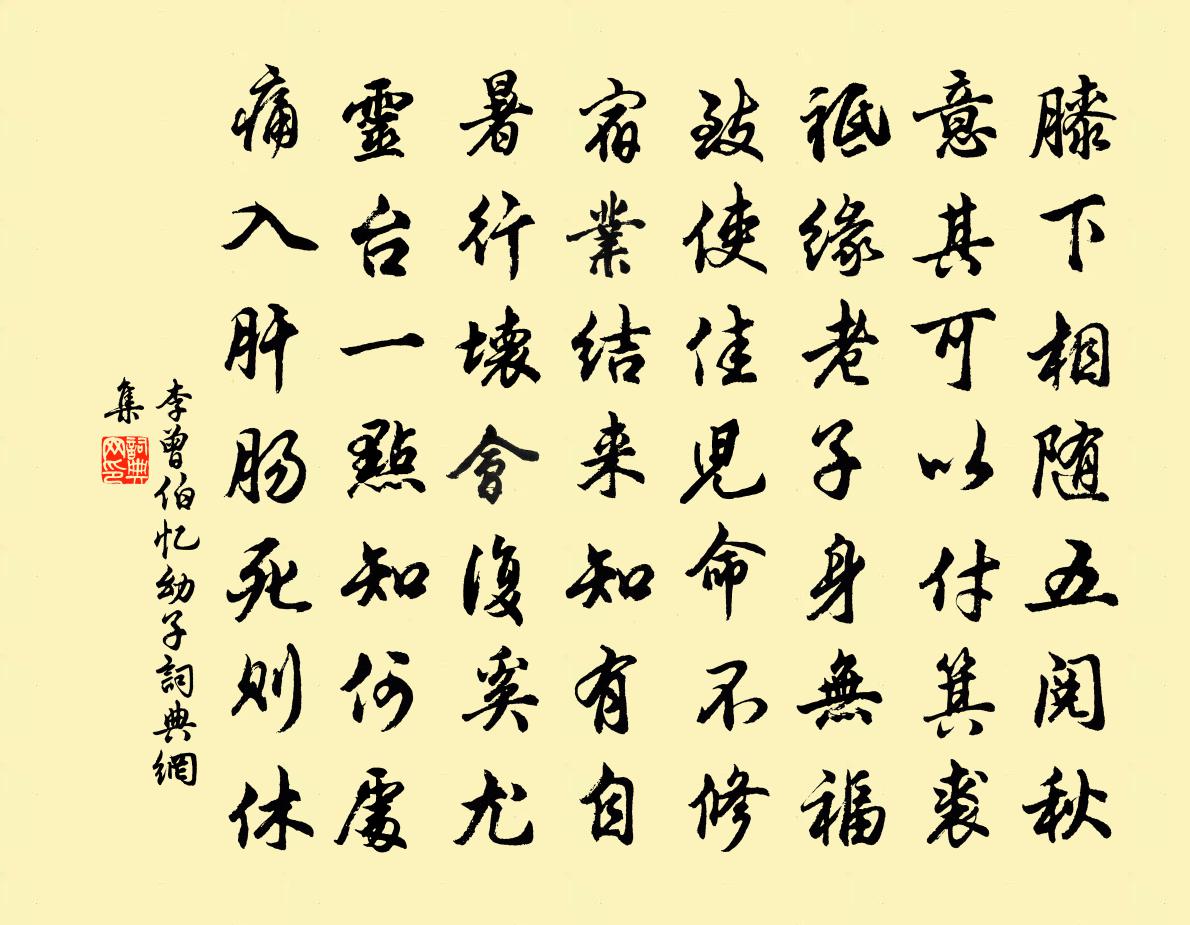 膝下相随五阅秋
意其可以付箕裘
祗缘老子身無福
致使佳児命不修
宿業结来知有自
暑行壊會復奚尤
靈台一點知何處
痛入肝肠死则休
李曾伯忆幼子詞典網
集
詞典网印